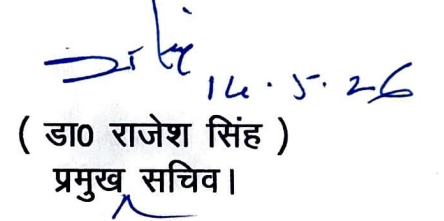 14.5.26
( डा0 राजेश सिंह )
प्रमुख सचिव।